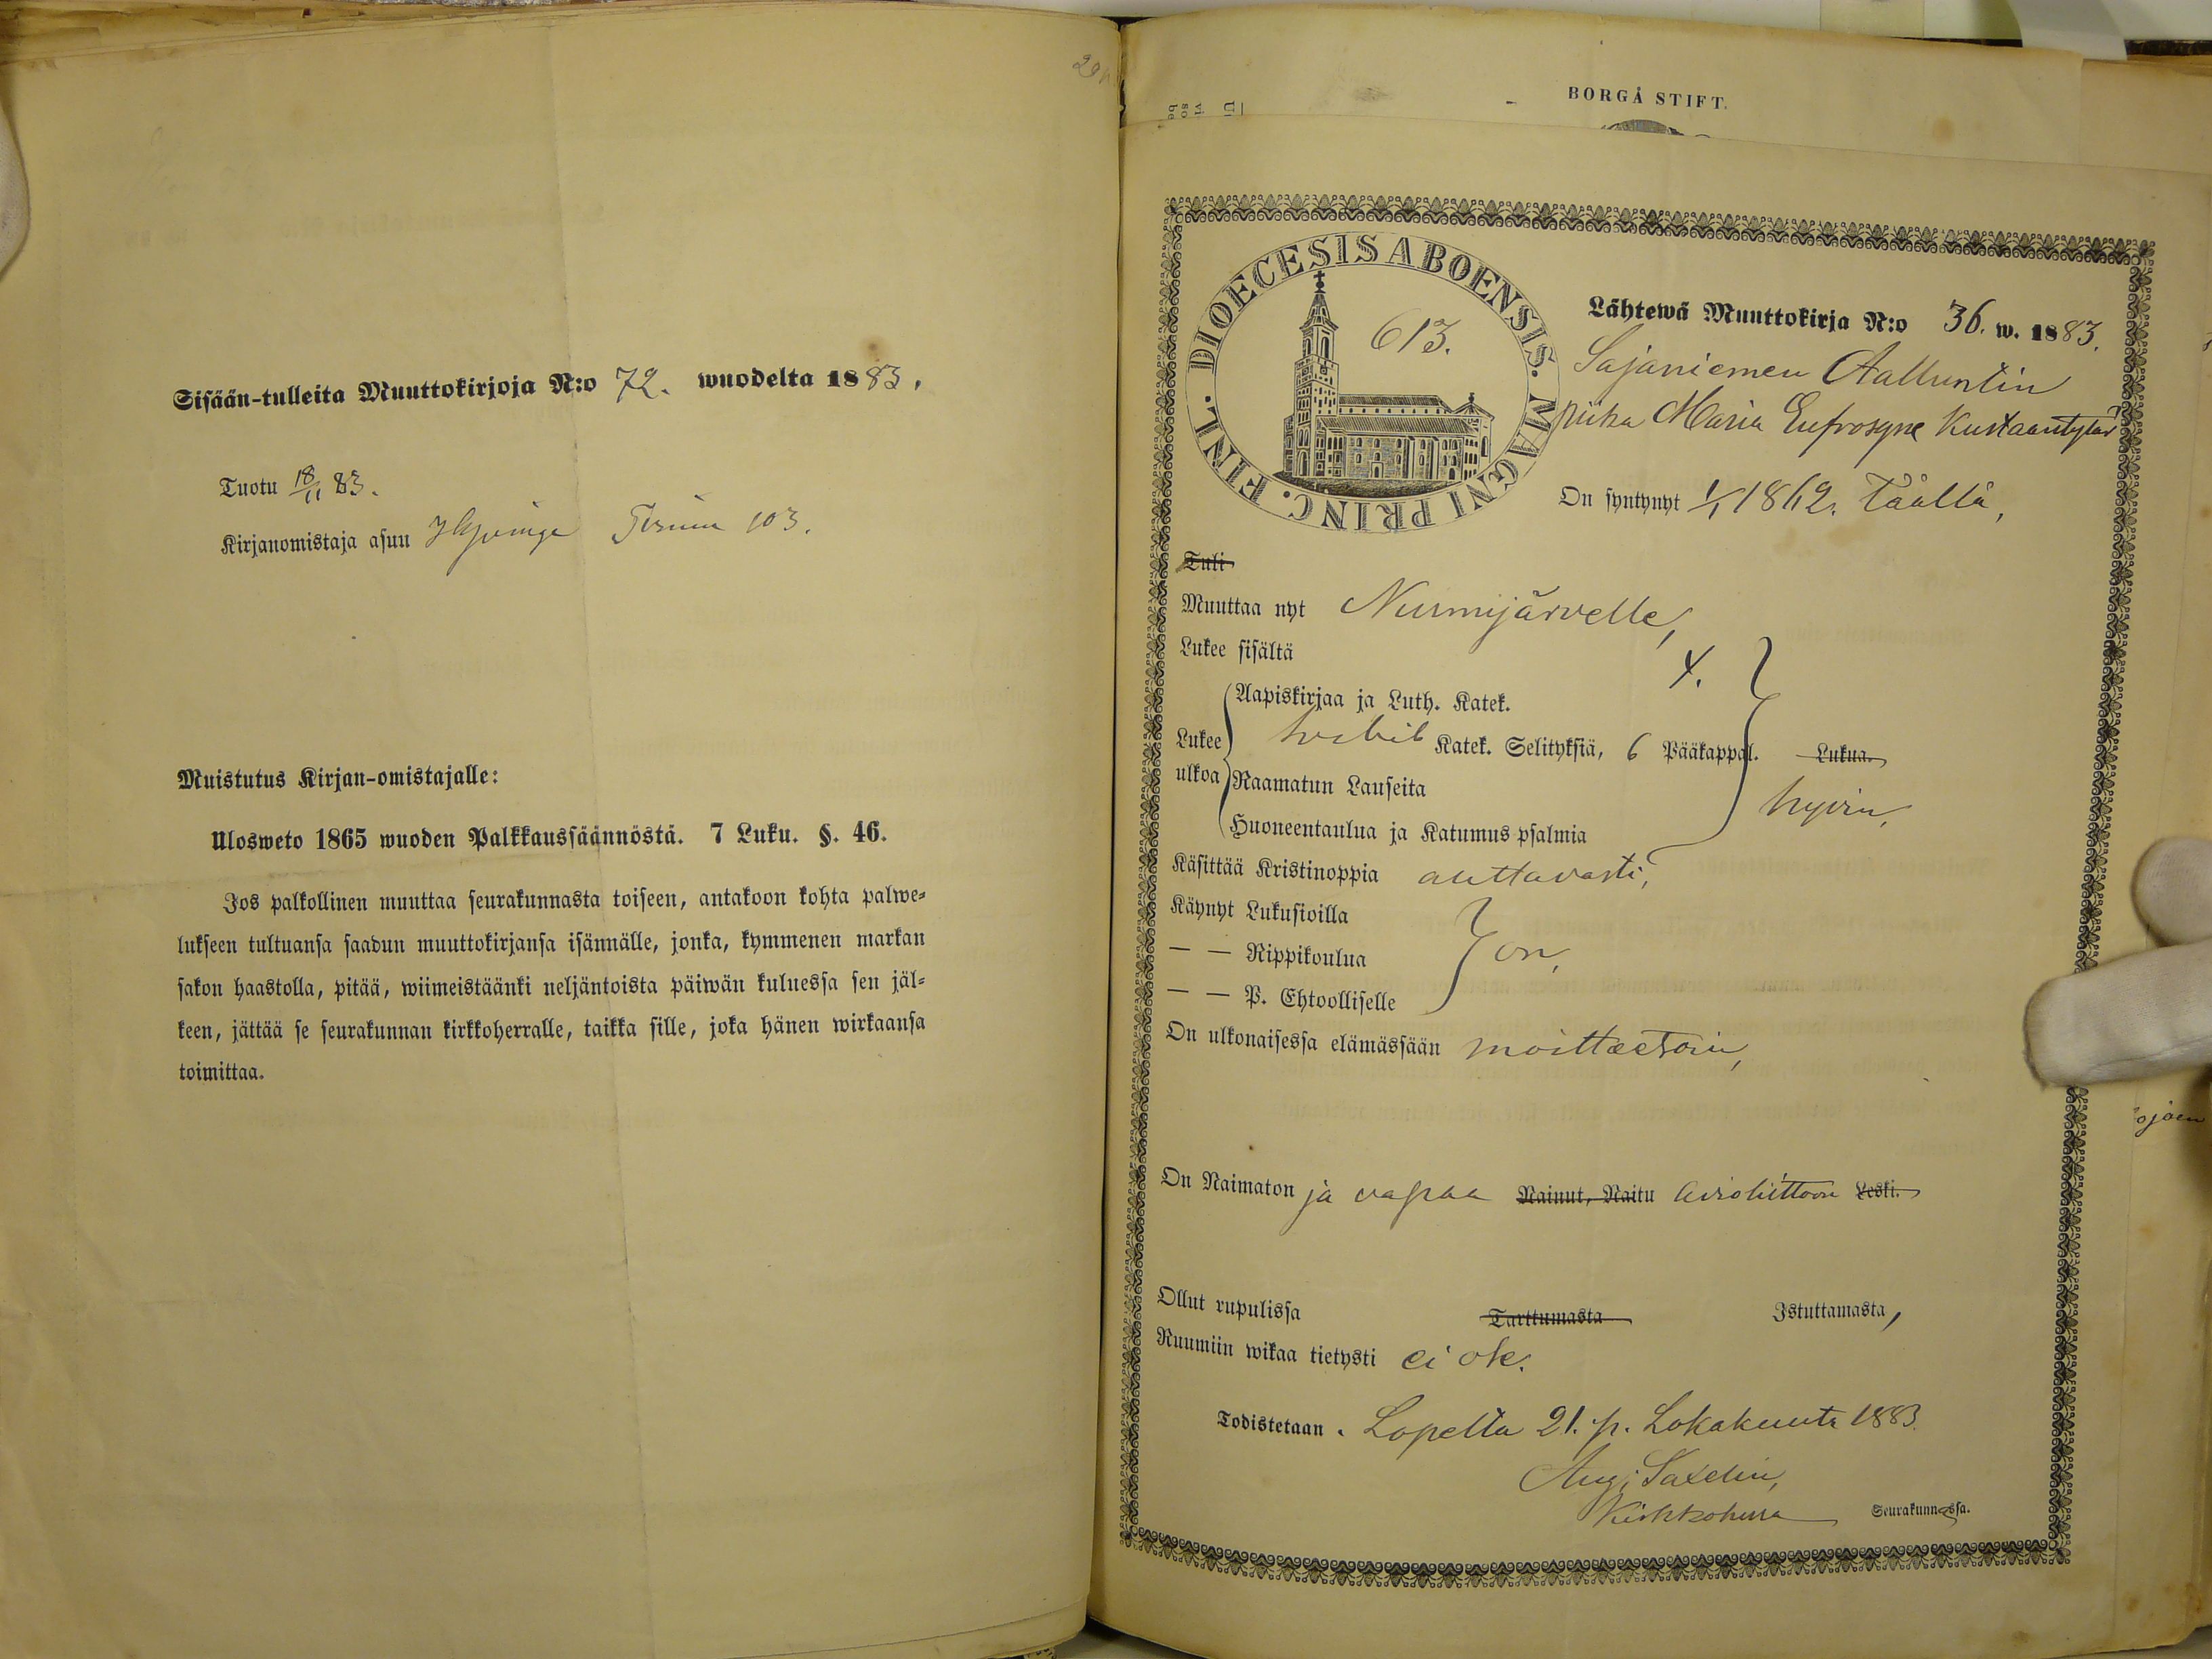 Sisään-tulleita Muuttokirjoja N:o 72. wuodelta 1883.
Tuotu 18/11 83.
Kirjanomistaja asuu 103.
Muistutus Kirjan-omistajalle:
Ulosweto 1865 wuoden Palkkaussäännöstä. 7 Luku. §. 46.
Jos palkollinen muuttaa seurakunnasta toiseen, antakoon kohta palwe-
lukseen tultuansa saadun muuttokirjansa isännälle, jonka, kymmenen markan
sakon haastolla, pitää, wiimeistäänki neljäntoista päiwän kuluessa sen jäl-
keen, jättää se seurakunnan kirkkoherralle, taikka sille, joka hänen wirkaansa
toimittaa.
BORGÅ STIFT.
DIOECESIS ABOENSIS. MAGNI PRINC. FINL.
613.
Lähtewä Muuttokirja N:o 36. w. 1883.
Sajaniemen
piika Maria Eufrosyne Kustaantytär
On syntynyt 1/1 1862. Täällä,
Tuli
Muuttaa nyt Nurmijärvelle,
Lukee sisältä 4.
Lukee ulkoa
Aapiskirjaa ja Luth. Katek.
Katek. Selityksiä, 6 Pääkappal. Lukua.
Raamatun Lauseita hyvin,
Huoneentaulua ja Katumus-psalmia
Käsittää Kristinoppia auttavasti,
Käynyt Lukusioilla
— — Rippikoulua on,
— — P. Ehtoolliselle
On ulkonaisessa elämässään moitteetoin,
On Naimaton ja vapaa Nainut, Naitu avioliittoon Leski.
Ollut rupulissa Tarttumasta Istuttamasta,
Ruumiin wikaa tietysti ei ole.
Todistetaan. Lopella 21. p. Lokakuuta 1883.
Aug. Saxelin,
Kirkkoherra Seurakunnassa.
ojoen